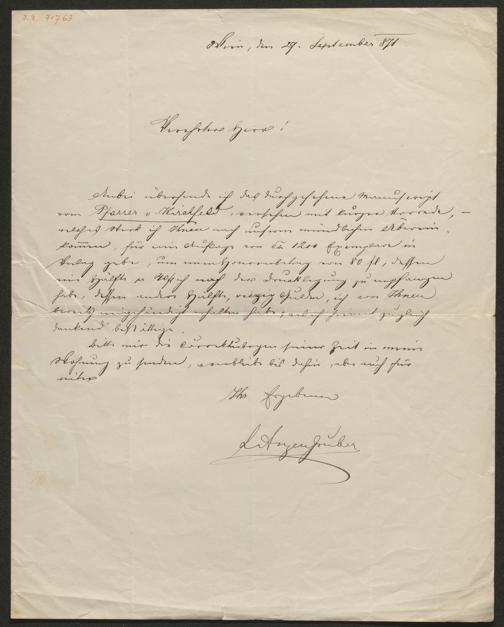 I.N. 71763
Wien, den 29. September 871
Verehrter Herr!
Anbei übersende ich das durchgesehene Manuscript
vom Pfarrer v Kirchfeld, versehen mit kurzer Vorrede, –
welches Werk ich Ihnen nach unserm mündlichen Überein-
kommen, für eine Auflage von 1200 Exemplare in
Verlag gebe, um ein Honorarbetrag von 80 fl, dessen
eine Hälfte ich nach der Drucklegung zu empfangen
habe, dessen andere Hälfte, vierzig Gulden, ich von Ihnen
bereits eingehändigt erhalten habe, was ich hiemit zugleich
dankend bestättige.
Bitte mir die Correkturbogen seiner Zeit in meine
Wohnung zu senden, verbleibe bis dahin, aber auch für
weiter
Ihr Ergebener
LAnzengruber